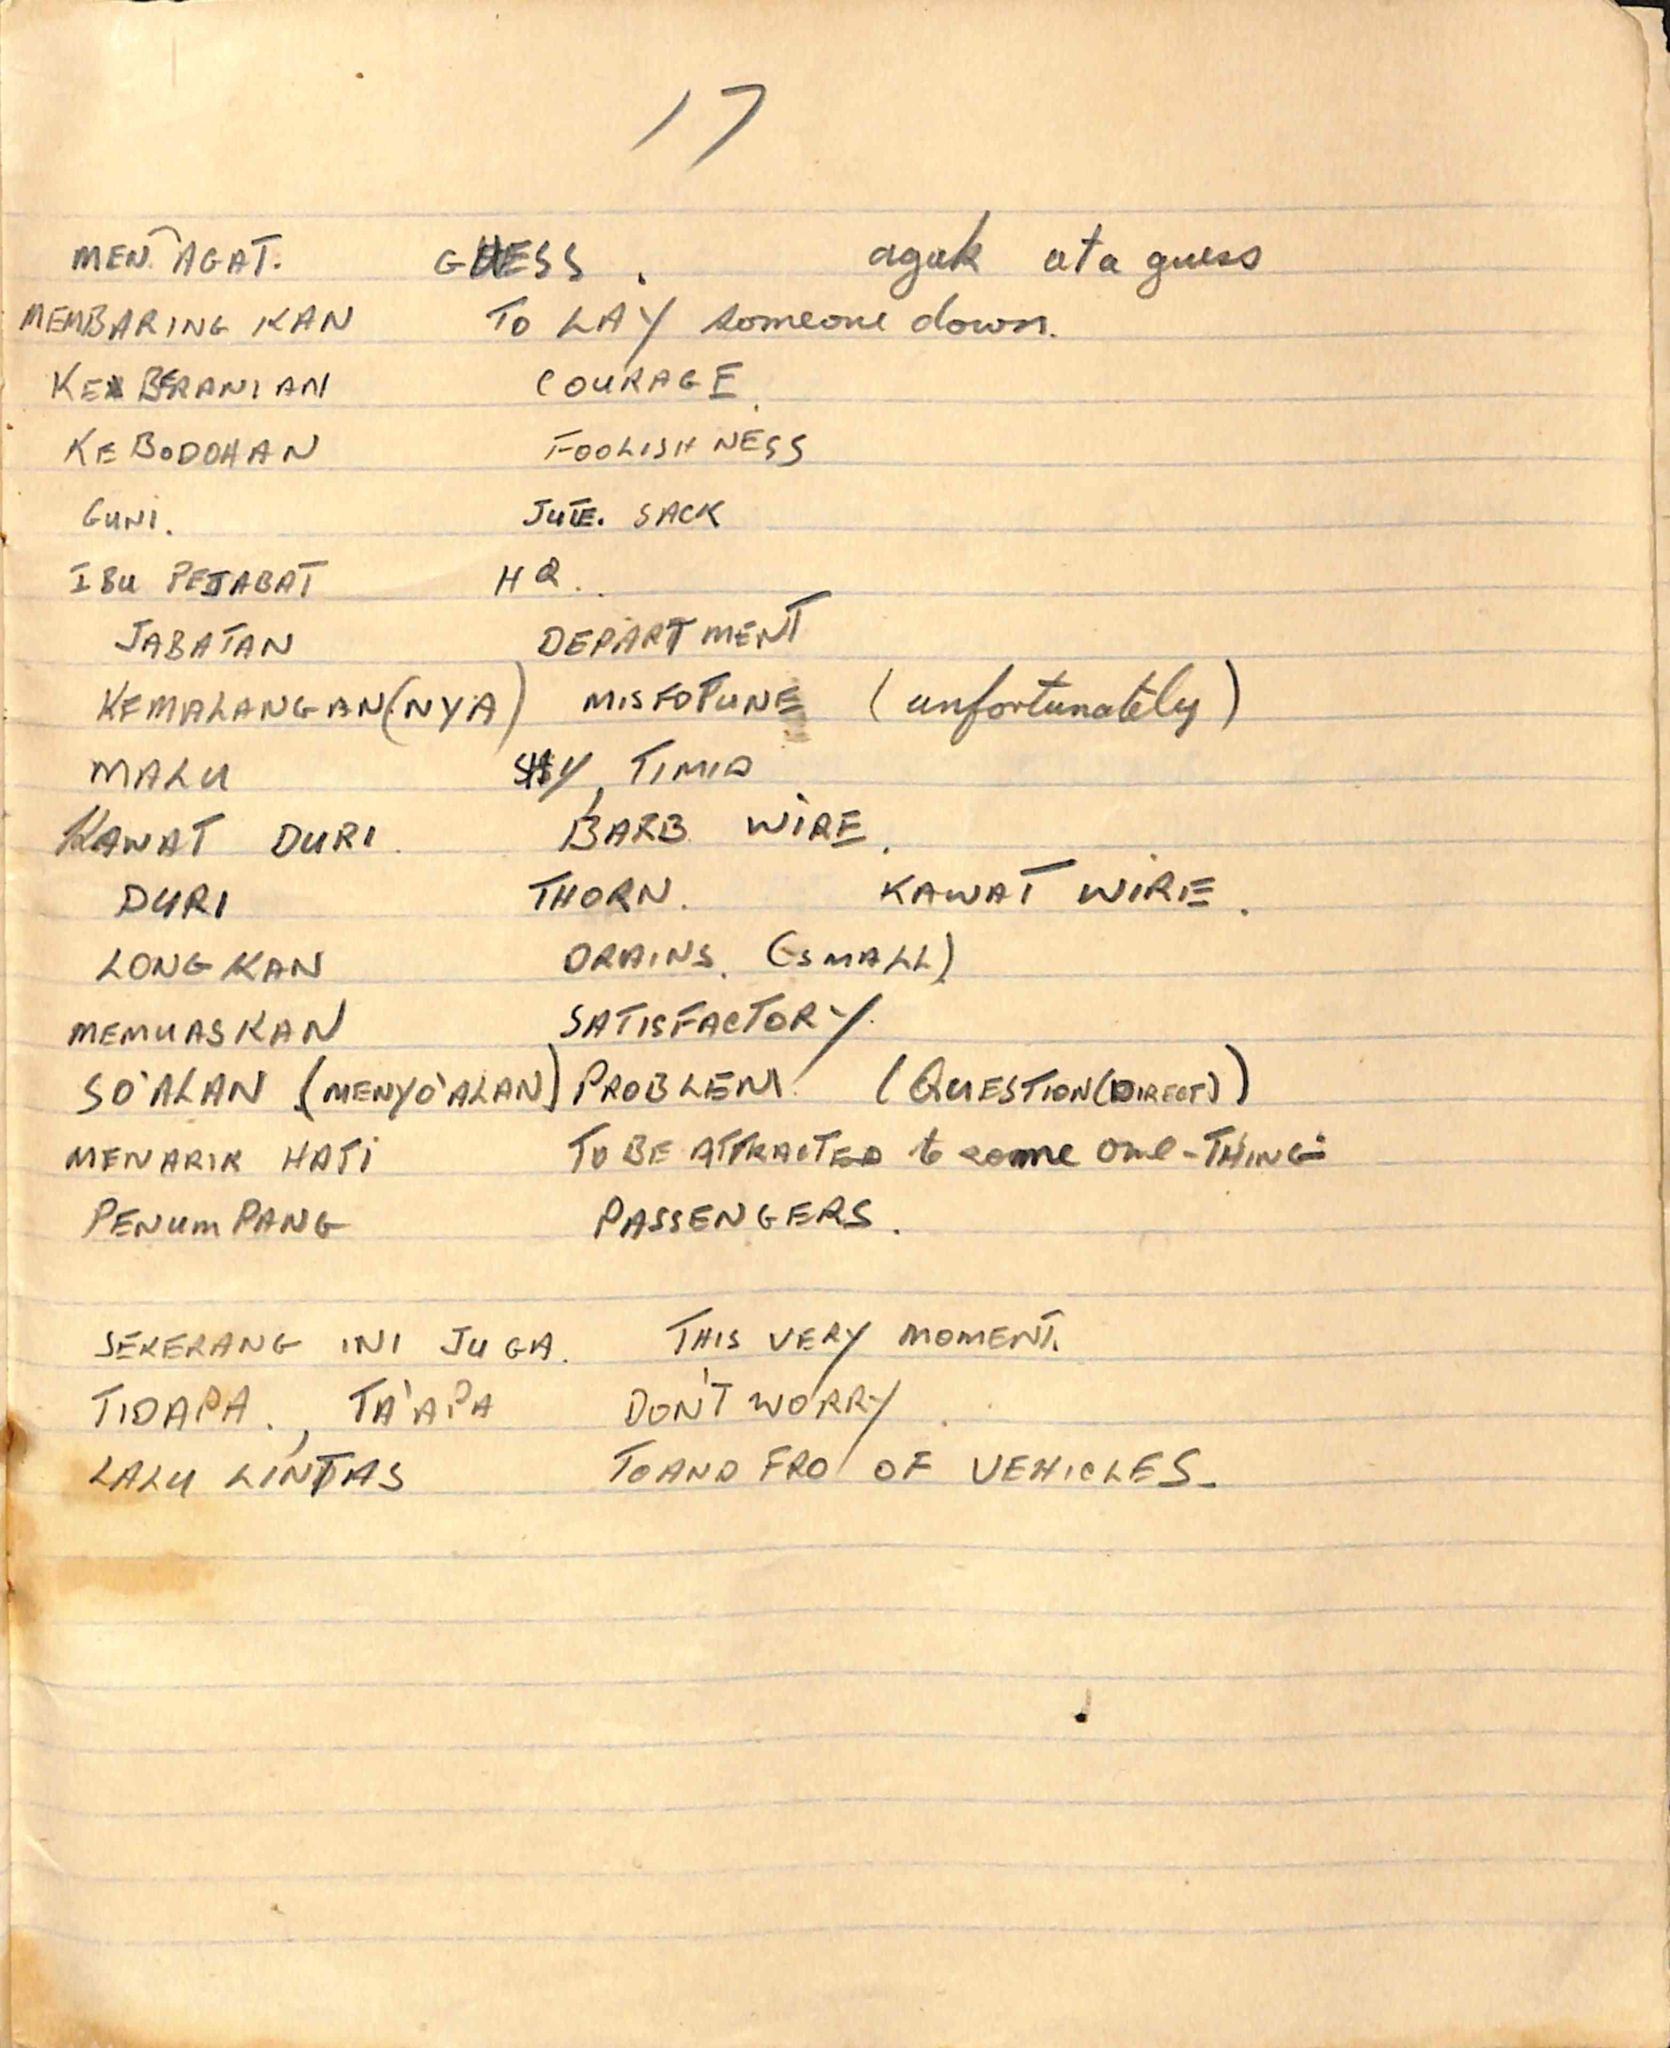 17
MEN AGAT. GUESS. agak ata guess
MEMBARING KAN TO LAY someone down.
KEBERANIAN COURAGE.
KEBODOHAN FOOLISHNESS
GUNI. JUTE. SACK
IBU PEJABAT HQ.
JABATAN DEPARTMENT
KEMALANGAN(NYA) MISFOTUNE (unfortunately)
MALU SHY, TIMID
KAWAT DURI. BARB WIRE.
DURI THORN. KAWAT WIRE.
LONGKAN DRAINS. (SMALL)
MEMUASKAN SATISFACTORY.
SO'ALAN (MENYO'ALAN) PROBLEM. (QUESTION(DIRECT))
MENARIK HATI TO BE ATTRACTED to some one-THING.
PENUMPANG PASSENGERS.
SEKERANG INI JUGA. THIS VERY MOMENT.
TIDAPA., TA'APA DON'T WORRY.
LALU LINTAS TO AND FRO OF VEHICLES.